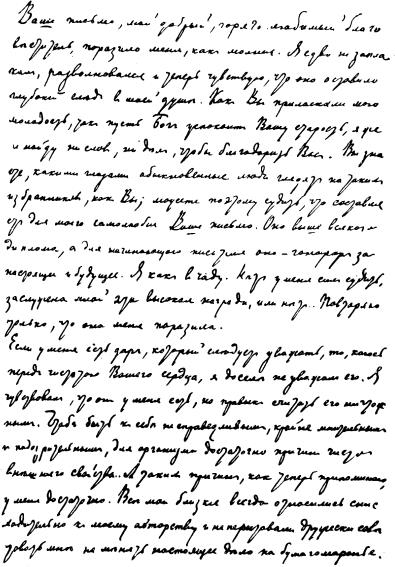 Ваше письмо, мой добрый, горячо любимый благо-
веститель, поразило меня, как молния. Я едва не запла-
кал, разволновался и теперь чувствую, что оно оставило
глубокий след в моей душе. Как Вы приласкали мою
молодость, так пусть Бог успокоит Вашу старость, я же
не найду ни слов, ни дел, чтобы благодарить Вас. Вы зна-
ете, какими глазами обыкновенные люди глядят на таких
избранников, как Вы; можете поэтому судить, что составля-
ет для моего самолюбия Ваше письмо. Оно выше всякого
диплома, а для начинающего писателя оно — гонорар за
настоящее и будущее. Я как в чаду. Нет у меня сил судить,
заслужена мной эта высокая награда, или нет... Повторяю
только, что она меня поразила.
Если у меня есть дар, который следует уважать, то, каюсь
перед чистотою Вашего сердца, я доселе не уважал его. Я
чувствовал, что он у меня есть, но привык считать его ничтож-
ным. Чтоб быть к себе несправедливым, крайне мнительным
и подозрительным, для организма достаточно причин чисто
внешнего свойства... А таких причин, как теперь припоминаю,
у меня достаточно. Все мои близкие всегда относились снис-
ходительно к моему авторству и не переставали дружески сове-
товать мне не менять настоящее дело на бумагомаранье.